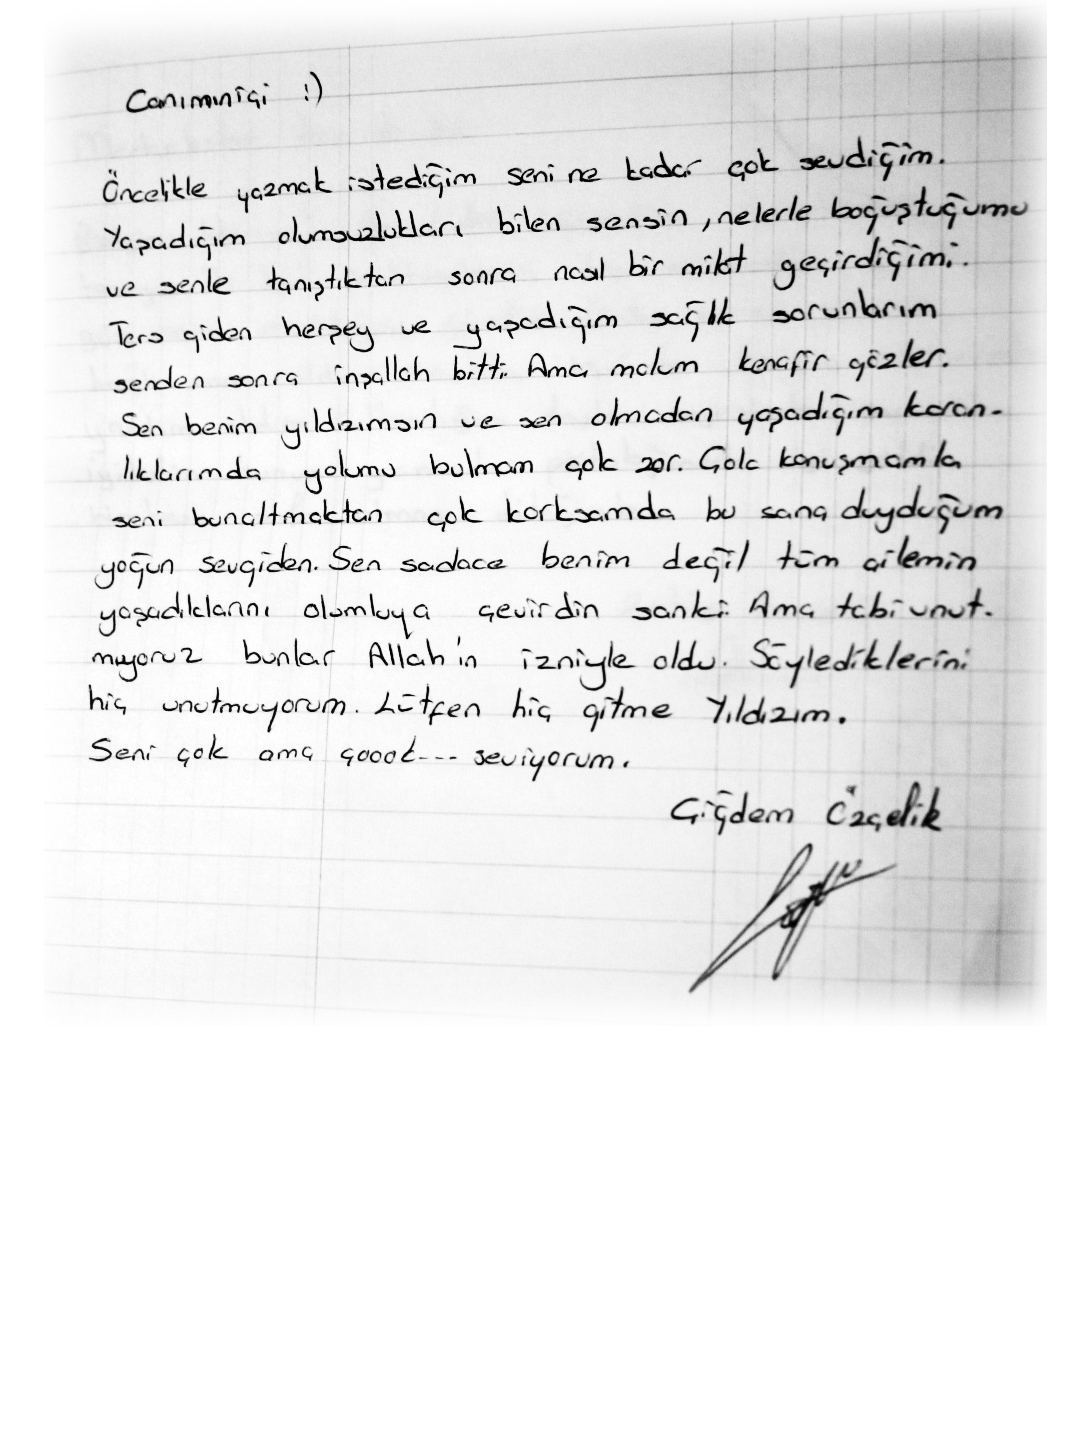 Canımıniçi :)
Öncelikle yazmak istediğim seni ne kadar çok sevdiğim.
Yaşadığım olumsuzlukları bilen sensin, nelerle boğuştuğumu
ve senle tanıştıktan sonra nasıl bir geçirdiğimi.
Ters giden herşey ve yaşadığım sağlık sorunlarım
senden sonra inşallah bitti. Ama malum kenafir gözler.
Sen benim yıldızımsın ve sen olmadan yaşadığım karan-
lıklarımda yolumu bulmam çok zor. Çok konuşmamla
seni bunaltmaktan çok korksamda bu sana duyduğum
yoğun sevgiden. Sen sadace benim değil tüm ailemin
yaşadıklarını olumluya çevirdin sanki. Ama tabi unut-
muyoruz bunlar Allah'ın izniyle oldu. Söylediklerini
hiç unutmuyorum. Lütfen hiç gitme Yıldızım.
Seni çok ama çoook--- seviyorum.
Çiğdem Özçelik